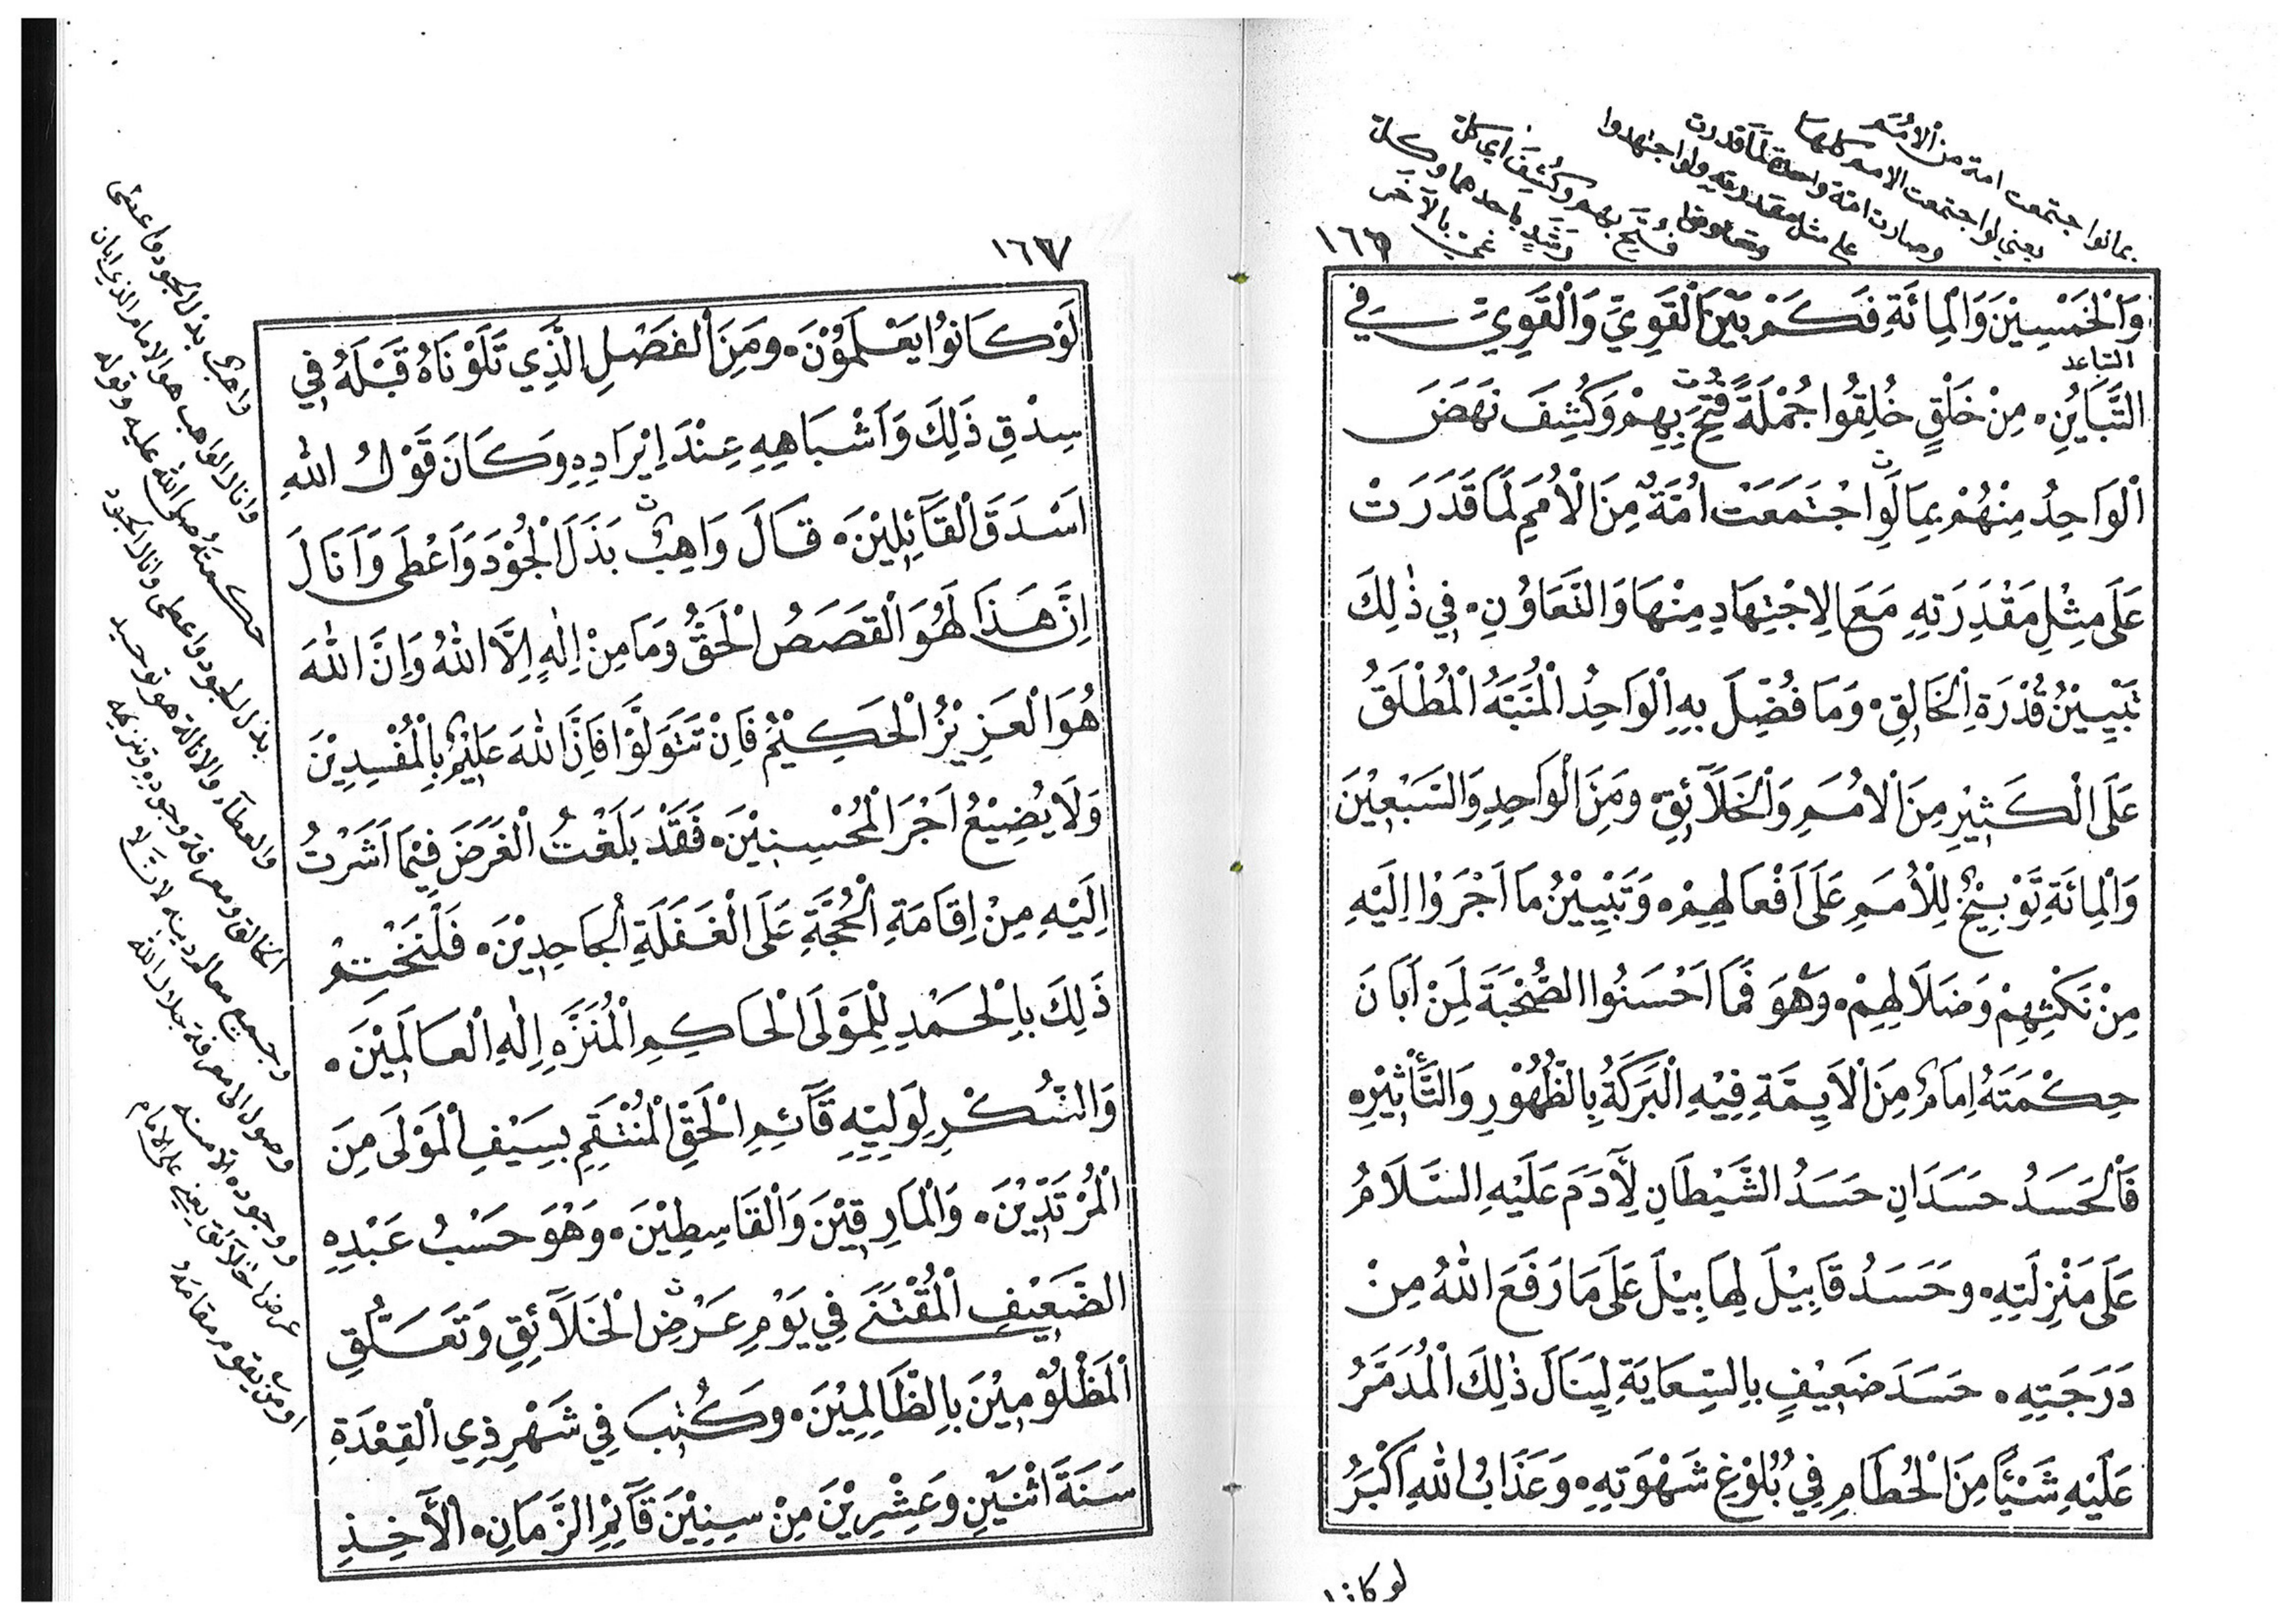 بمالوا جتمعت امة من الأمم
يعني لوا جتمعت الامم كلها
وصارت امة واحدة لما قدرت
على مثل مقدرته ولوا جتهدوا
وتعاونوا
فُتِحَ بهم وكُشِفَ اي كل
١٦٦
وَالْخَمْسِيْنَ وَالْمِائَةِ فَكَمْ بَيْنَ الْقَوِيِّ وَالْقَوِيِّ فِي
التباعد
التَّبَايُنِ ۰ مِنْ خَلْقٍ خُلِقُوا جُمْلَةً فُتِحَ بِهِمْ وَكُشِفَ نَهَضَ
الْوَاحِدُ مِنْهُمْ بِمَا لَوِا جْتَمَعَتْ اُمَّةٌ مِنَ الْأُمَمِ لَمَا قَدَرَتْ
عَلَى مِثْلِ مَقْدِرَتِهِ مَعَ الِاجْتِهَادِ مِنْهَا وَالتَّعَاوُنِ ۰ فِي ذٰلِكَ
تَبْيِيْنُ قُدْرَةِ الْخَالِقِ ۰ وَمَا فُضِّلَ بِهِ الْوَاحِدُ الْمُنَبَّهُ الْمُطْلَقُ
عَلَى الْكَثِيْرِ مِنَ الْاُمَمِ وَالْخَلَآئِقِ ۰ وَمِنَ الْوَاحِدِ وَالسَّبْعِيْنَ
وَالْمِائَةِ تَوْبِيْخٌ لِلْأُمَمِ عَلَى اَفْعَالِهِمْ ۰ وَتَبْيِيْنُ مَا اَجْرَوْا اِلَيْهِ
مِنْ نَكْثِهِمْ وَضَلَالِهِمْ ۰ وَهُوَ فَمَا اَحْسَنُوا الصُّحْبَةَ لِمَنْ اَبَانَ
حِكْمَتَهُ اِمَامٌ مِنَ الْاَيِمَّةِ فِيْهِ الْبَرَكَةُ بِالظُّهُوْرِ وَالتَّأْثِيْرِ ۰
فَالْحَسَدُ حَسَدَانِ حَسَدُ الشَّيْطَانِ لِآدَمَ عَلَيْهِ السَّلَامُ
عَلَى مَنْزِلَتِهِ ۰ وَحَسَدُ قَابِيْلَ لِهَابِيْلَ عَلَى مَا رَفَعَ اللهُ مِنْ
دَرَجَتِهِ ۰ حَسَدَ ضَعِيْفٍ بِالسِّعَايَةِ لِيَنَالَ ذٰلِكَ الْمُدَمَّرُ
عَلَيْهِ شَيْئًا مِنَ الْحُطَامِ فِي بُلُوْغِ شَهْوَتِهِ ۰ وَعَذَابُ اللهِ اَكْبَرُ
لو كانوا
١٦٧
لَوْ كَانُوا يَعْلَمُوْنَ ۰ وَمِنَ الْفَصْلِ الَّذِي تَلَوْنَاهُ قَبْلَهُ فِي
سِدْقِ ذَلِكَ وَاَشْبَاهِهِ عِنْدَ اِيْرَادِهِ وَكَانَ قَوْلُ اللهِ
اَسْدَقَ الْقَآئِلِيْنَ ۰ قَالَ وَاهِبٌ بَذَلَ الْجُوْدَ وَاَعْطَى وَاَنَالَ
اِنَّ هَذَا لَهُوَ الْقَصَصُ الْحَقُّ وَمَا مِنْ اِلٰهٍ اِلَّا اللهُ وَاِنَّ اللهَ
هُوَ الْعَزِيْزُ الْحَكِيْمُ فَاِنْ تَتَوَلَّوْا فَاِنَّ اللهَ عَلِيْمٌ بِالْمُفْسِدِيْنَ
وَلَا يُضِيْعُ اَجْرَ الْمُحْسِنِيْنَ ۰ فَقَدْ بَلَغْتُ الْغَرَضَ فِيْمَا اَشَرْتُ
اِلَيْهِ مِنْ اِقَامَةِ الْحُجَّةِ عَلَى الْغَفَلَةِ الْجَاحِدِيْنَ ۰ فَلْنَخْتِمْ
ذَلِكَ بِالْحَمْدِ لِلْمَوْلَى الْحَاكِمِ الْمُنَزَّهِ اِلٰهِ الْعَالَمِيْنَ ۰
وَالشُّكْرِ لِوَلِيِّهِ قَآئِمِ الْحَقِّ الْمُنْتَقِمِ بِسَيْفِ الْمَوْلَى مِنَ
الْمُرْتَدِّيْنَ ۰ وَالْمَارِقِيْنَ وَالْقَاسِطِيْنَ ۰ وَهُوَ حَسْبُ عَبْدِهِ
الضَّعِيْفِ الْمُقْتَنَى فِي يَوْمِ عَرْضِ الْخَلَآئِقِ وَتَعَلُّقِ
الْمَظْلُوْمِيْنَ بِالظَّالِمِيْنَ ۰ وَكُتِبَ فِي شَهْرِ ذِي الْقِعْدَةِ
سَنَةَ اثْنَيْنِ وَعِشْرِيْنَ مِنْ سِنِيْنَ قَآئِمِ الزَّمَانِ ۰ الْآخِذِ
واجرى بذل الجود واعطى
وانال الواهب هو الامام الذي ابان
حكمته صلى الله عليه وقوله
بذل الجود واعطى وانال الجود
والعطآء والانالة هو توحيد
الخالق ومعرفة وجوده وتنزيهه
وجميع معالم دينه لانه لا
وصول الى معرفة جلال الله
ووجوده الا منه
عرض الخلآئق يعني على الامام
او من يقوم مقامه